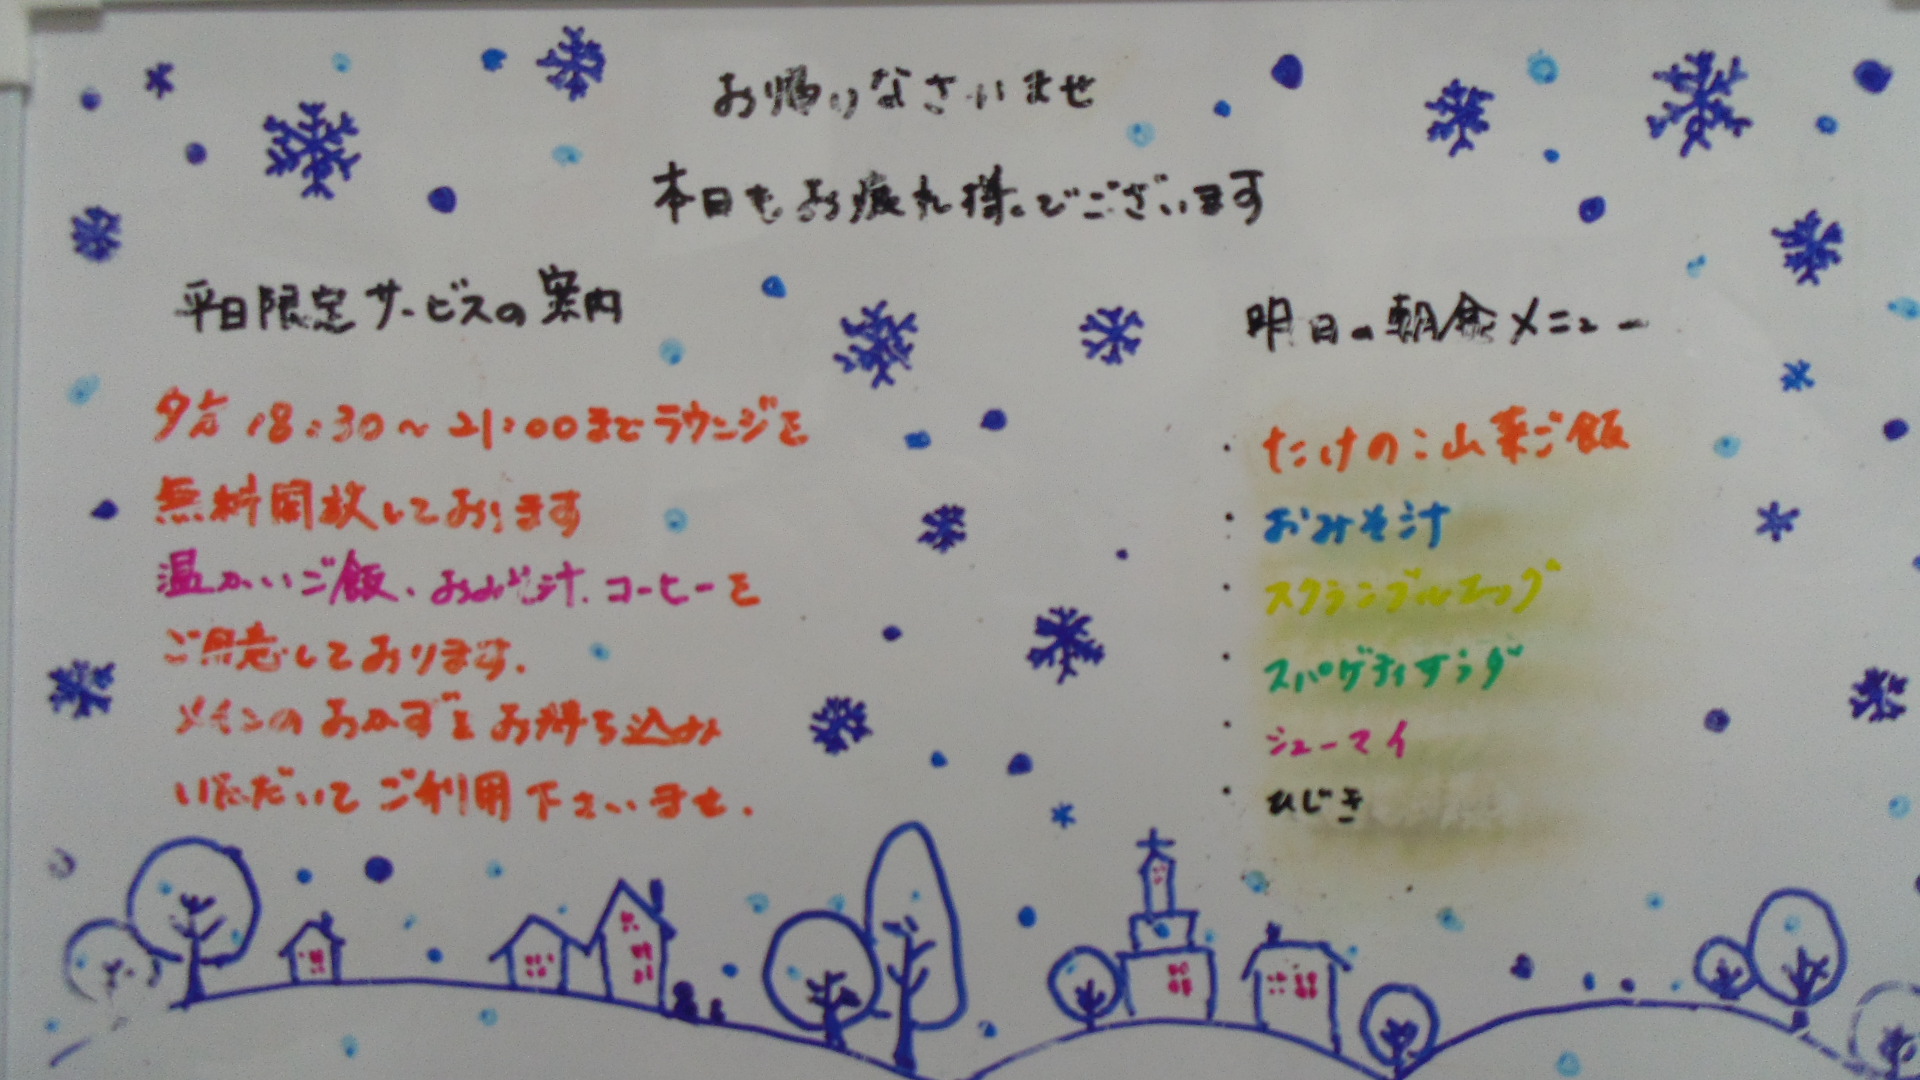 お帰りなさいませ
本日もお疲れ様でございます
平日限定サービスの案内
夕方 18:30～21:00までラウンジを
無料開放しております
温かいご飯、おみそ汁、コーヒーを
ご用意しております.
メインのおかずをお持ち込み
いただいてご利用下さいませ.
明日の朝食メニュー
・たけのこ山菜ご飯
・おみそ汁
・スクランブルエッグ
・スパゲティサラダ
・シューマイ
・ひじき